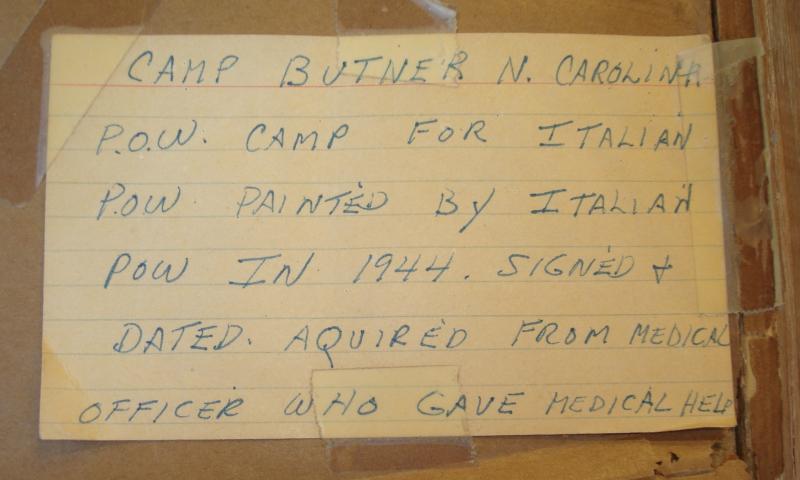 CAMP BUTNER N. CAROLINA
P.O.W. CAMP FOR ITALIAN
P.O.W PAINTED BY ITALIAN
POW IN 1944. SIGNED +
DATED. AQUIRED FROM MEDICAL
OFFICER WHO GAVE MEDICAL HELP